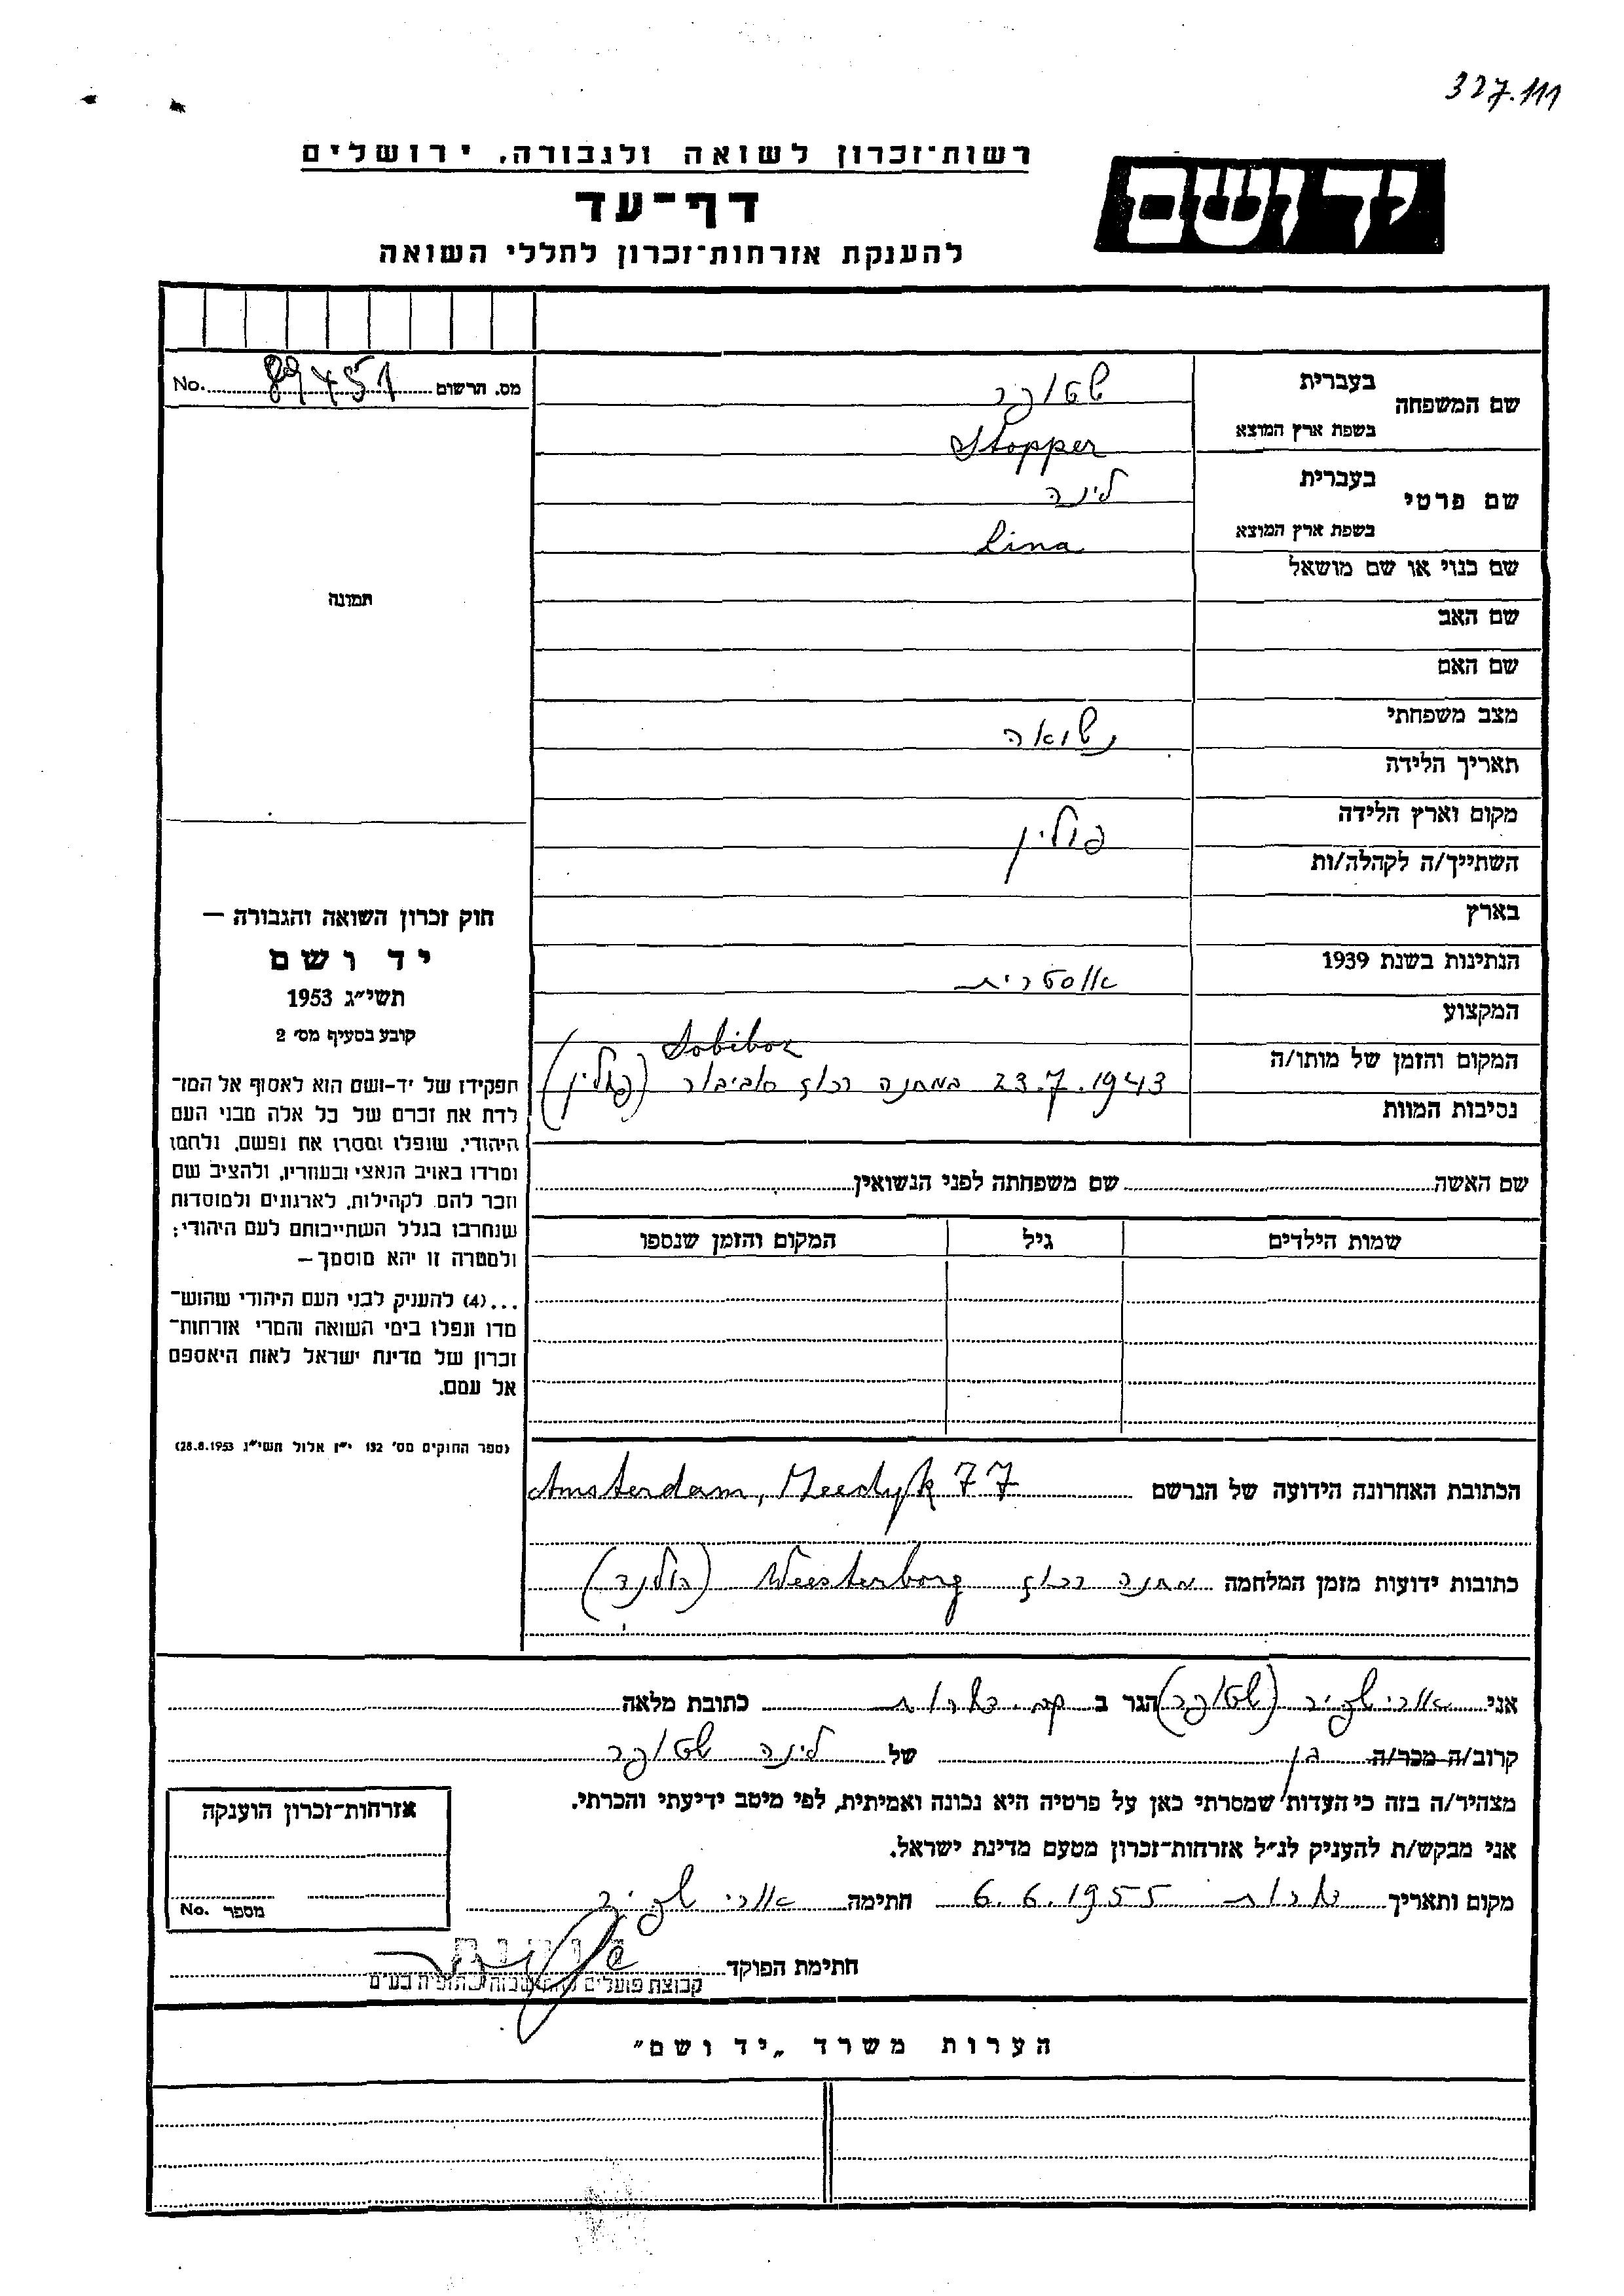 327.111
יד ושם
רשות־זכרון לשואה ולגבורה, ירושלים
דף־עד
להענקת אזרחות־זכרון לחללי השואה
שם המשפחה בעברית שטופר
בשפת ארץ המוצא Stopper
שם פרטי בעברית לינה
בשפת ארץ המוצא Lina
שם כנוי או שם מושאל
שם האב
שם האם
מצב משפחתי נשואה
תאריך הלידה
מקום וארץ הלידה פולין
השתייך/ה לקהלה/ות
בארץ
הנתינות בשנת 1939 אוסטרית
המקצוע
המקום והזמן של מותו/ה Sobibor
23.7.1943 במחנה רכוז סוביבור (פולין)
נסיבות המוות
שם האשה שם משפחתה לפני הנשואין
שמות הילדים גיל המקום והזמן שנספו
הכתובת האחרונה הידועה של הנרשם Amsterdam, 77
כתובות ידועות מזמן המלחמה מחנה רכוז Weesterborg (הולנד)
מס. הרשום 89451 No.
תמונה
חוק זכרון השואה והגבורה —
יד ושם
תשי״ג 1953
קובע בסעיף מס׳ 2
תפקידו של יד-ושם הוא לאסוף אל המו־
לדת את זכרם של כל אלה מבני העם
היהודי, שנפלו ומסרו את נפשם, נלחמו
ומרדו באויב הנאצי ובעוזריו, ולהציב שם
וזכר להם, לקהילות, לארגונים ולמוסדות
שנחרבו בגלל השתייכותם לעם היהודי;
ולמטרה זו יהא מוסמך —
...(4) להעניק לבני העם היהודי שהוש־
מדו ונפלו בימי השואה והמרי אזרחות־
זכרון של מדינת ישראל לאות היאספם
אל עמם.
(ספר החוקים מס׳ 132 י״ז אלול תשי״ג 28.8.1953)
אני אורי שפיר (שטופר) הגר ב קב. דברות כתובת מלאה
קרוב/ה מכר/ה בן של לינה שטופר
מצהיר/ה בזה כי העדות שמסרתי כאן על פרטיה היא נכונה ואמיתית, לפי מיטב ידיעתי והכרתי.
אני מבקש/ת להעניק לנ״ל אזרחות־זכרון מטעם מדינת ישראל.
מקום ותאריך דברות 6.6.1955 חתימה אורי שפיר
חתימת הפוקד
קבוצת פועלים בע״מ
אזרחות־זכרון הוענקה
מספר No.
הערות משרד „יד ושם״